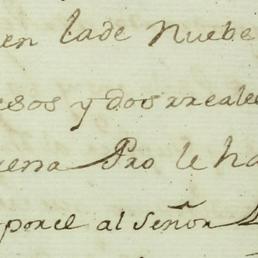 en lade nuebe
esos y dos rreales
uena Pro le ha
porel al señor